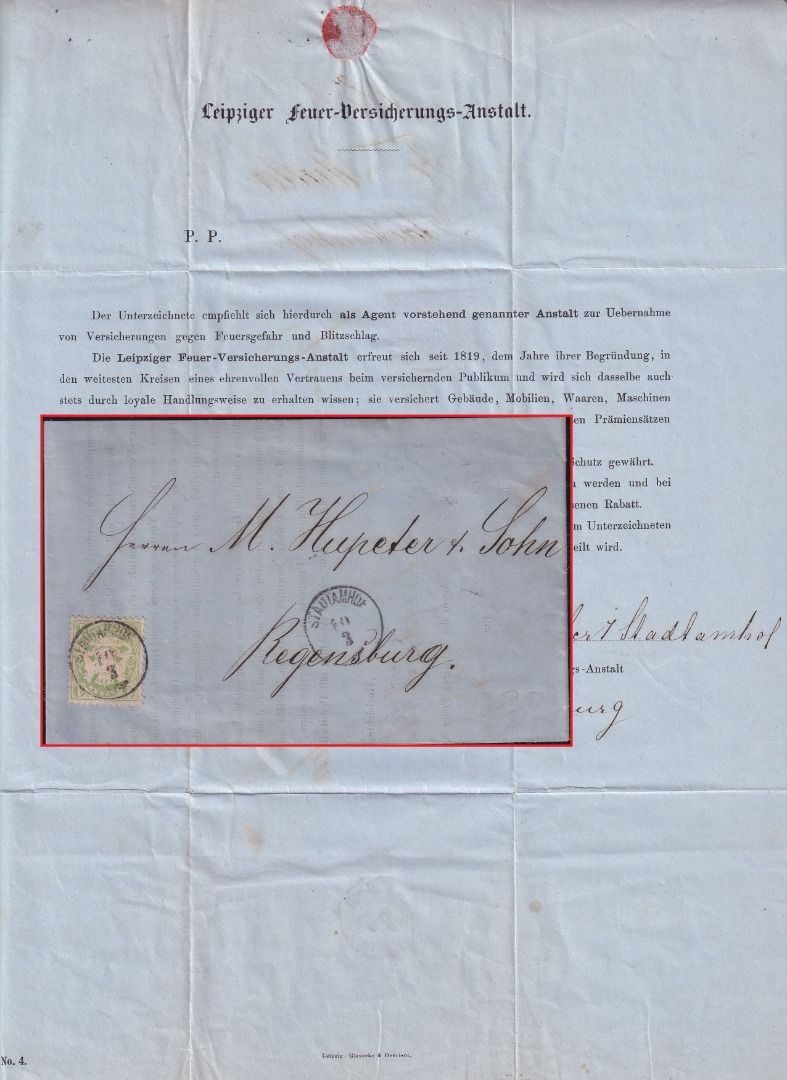 Leipziger Feuer-Versicherungs-Anstalt.
P. P.
Der Unterzeichnete empfiehlt sich hierdurch als Agent vorstehend genannter Anstalt zur Uebernahme
von Versicherungen gegen Feuersgefahr und Blitzschlag.
Die Leipziger Feuer-Versicherungs-Anstalt erfreut sich seit 1819, dem Jahre ihrer Begründung, in
den weitesten Kreisen eines ehrenvollen Vertrauens beim versichernden Publikum und wird sich dasselbe auch
stets durch loyale Handlungsweise zu erhalten wissen; sie versichert Gebäude, Mobilien, Waaren, Maschinen
en Prämiensätzen
Schutz gewährt.
werden und bei
enen Rabatt.
m Unterzeichneten
eilt wird.
Herren M. Hupeter & Sohn
STADTAMHOF
3
Regensburg.
STADTAMHOF
3
Stadtamhof
s-Anstalt
urg
No. 4.
Leipzig, Giesecke & Devrient.